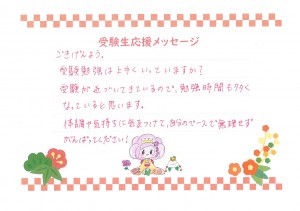 受験生応援メッセージ
ごきげんよう。
受験勉強は上手くいっていますか？
受験が近づいてきているので、勉強時間も多く
なっていると思います。
体調や気持ちに気をつけて、自分のペースで無理せず
がんばってください！